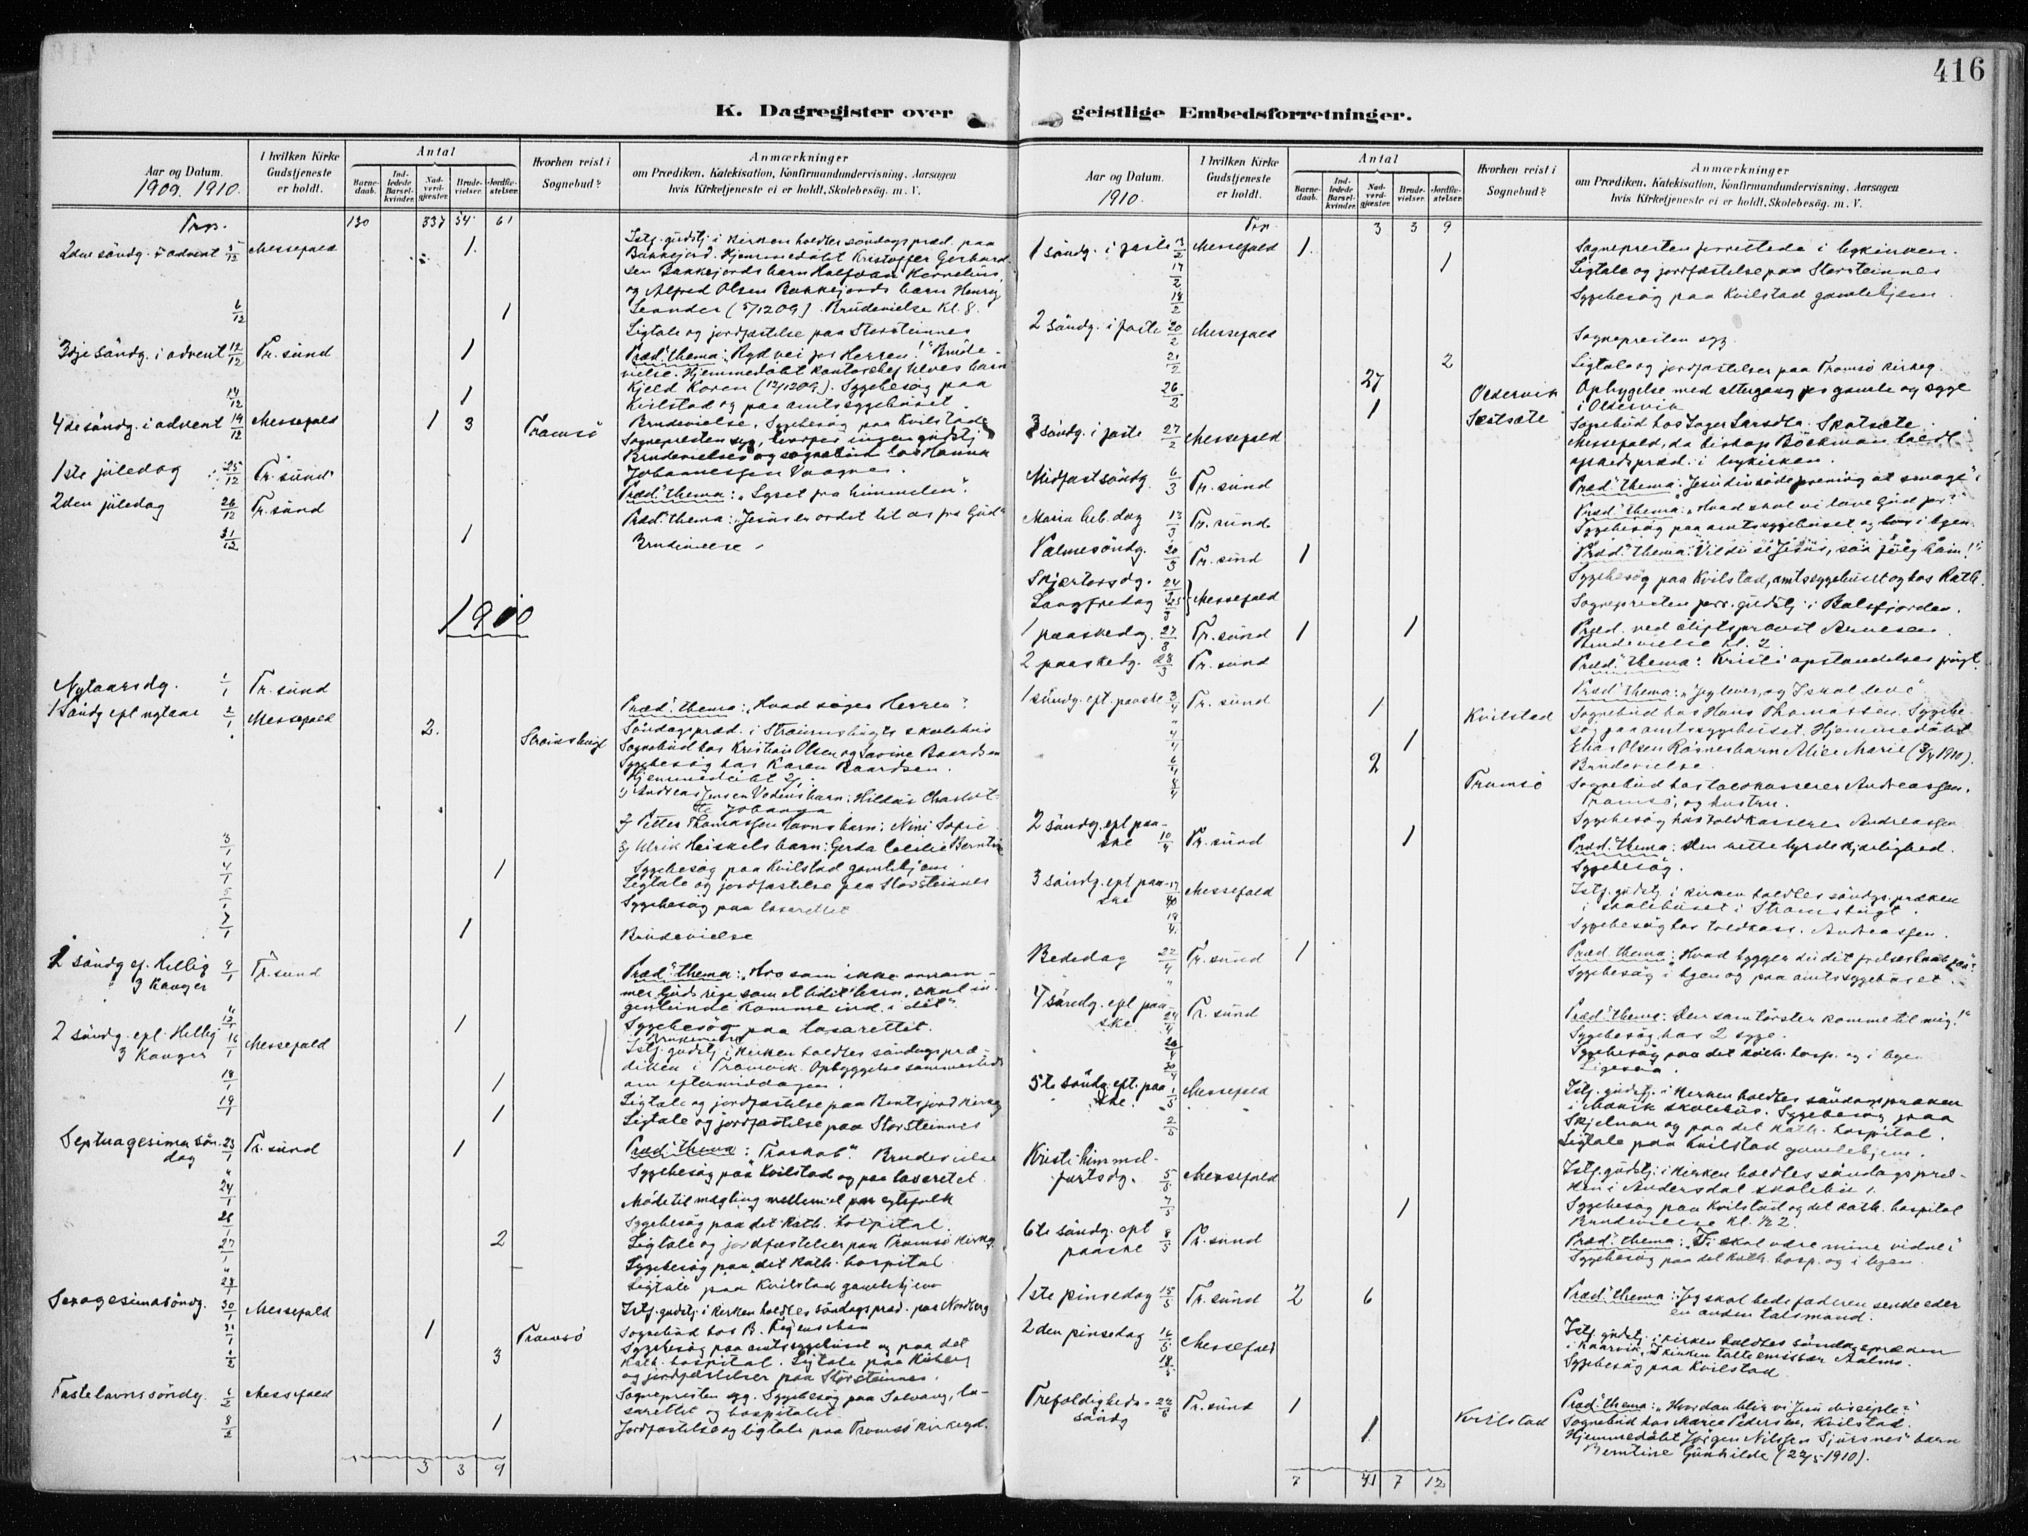 416
K. Dagregister over geistlige Embedsforretninger.
Aar og Datum.
1909. 1910.
I hvilken Kirke Gudstjeneste er holdt.
Antal
Barne-daab.
Ind-ledede Barsel-kvinder.
Nad-verd-gjæster.
Brude-vielser.
Jordfæ-stelser.
Hvorhen reist i Sognebud?
Anmærkninger
om Prædiken, Katekisation, Konfirmandundervisning, Aarsagen
hvis Kirketjeneste ei er holdt, Skolebesøg. m. V.
Trp. 130 337 54 61
2den söndg. i advent 5/12 Messefald 1 Istf. gudstj. i kirken holdtes söndagspræd. paa
Bakkejord. Hjemmedöbt Kristoffer Gerhard-
sen Bakkejords barn Halfdan Kornelius
og Alfred Olsen Bakkejords barn Henry
6/12 1 Leander (5/12 09). Brudevielse Kl. 8.
Ligtale og jordfæstelse paa Storsteinnes
3dje söndg. i advent 12/12 Tr. sund 1 Præd. thema: "Ryd vei for Herren!" Brude-
vielse. Hjemmedöbt barn
Kjeld Koren (12/12 09). Sygebesög paa
14/12 1 Kvilstad og paa amtssygehuset.
4de söndg. i advent 19/12 Messefald 1 3 Tromsö Brudevielse, Sygebesög paa Kvilstad
Sognepresten syg, hvorfor ingen gudstj.
Brudevielser og sognebud hos Hanna
1ste juledag 25/12 Tr. sund Johannessen Vaagnes.
Præd. thema: "Lyset fra himmelen".
2den juledag 26/12 Tr. sund Præd. thema: "Jesus er ordet til os fra Gud"
31/12 1 Brudevielse.
1910
Nytaarsdg. 1/1 Tr. sund Præd. thema: "Hvad siger Herren?"
1 Söndg. eft. nytaar 2/1 Messefald 2 Straumsbugt Söndagspræd. i Straumsbugts skolehus
Sognebud hos Kristian Olsen og Lavine Baardsen
Sygebesög hos Karen Baardsen.
Hjemmedöbt 2/1:
1) Andreas Jensen barn: Hilda Charlot-
te Johanna
2) Petter Thomassen Havns barn: Nini Sofie
3/1 3) Ulrik Heiskels barn: Gerda Cecilie Berntine
4/1 1 Sygebesög paa Kvilstad gamlehjem
Ligtale og jordfæstelse paa Storsteinnes
5/1 Sygebesög paa lasarettet
7/1 1 Brudevielse
1 söndg. ef. Hellig 3 Konger 9/1 Tr. sund Præd. thema: "Hvo som ikke annam-
mer Guds rige som et lidet barn, skal in-
genlunde komme ind i det".
12/1 1 Sygebesög paa lasarettet.
Brudevielse
2 söndg. eft. Hellig 3 Konger 16/1 Messefald Istf. gudstj. i kirken holdtes söndagspræ-
diken i Tromvik. Opbyggelse sammesteds
om eftermiddagen.
18/1 1 Ligtale og jordfæstelse paa Bentsjord kirkeg
19/1 1 Ligtale og jordfæstelse paa Storsteinnes
Septuagesima sön-dag 23/1 Tr. sund 1 Præd. thema: "Troskab". Brudevielse
" Sygebesög paa Kvilstad og paa lasarettet
24/1 Möde til mægling mellem et par egtefolk
26/1 Sygebesög paa det kath. hospital.
27/1 2 Ligtale og jordfæstelser paa Tromsö kirkeg.
" Sygebesög paa det kath. hospital
28/1 Ligtale paa Kvilstad gamlehjem
Sexagesimasöndg. 30/1 Messefald Istf. gudstj. i kirken holdtes söndagspræd. paa Nordberg
31/1 1 Tromsö Sognebud hos B.
1/2 3 Sygebesög paa amtssygehuset og paa det
kath. hospital. Ligtale paa
og jordfæstelser paa Storsteinnes.
Fastelavnssöndg. 6/2 Messefald Sognepresten syg. Sygebesög paa Solvang, la-
sarettet og hospitalet
8/2 1 Jordfæstelse og ligtale paa Tromsö kirkegd.
3 3 9
Aar og Datum.
1910.
I hvilken Kirke Gudstjeneste er holdt.
Antal
Barne-daab.
Ind-ledede Barsel-kvinder.
Nad-verd-gjæster.
Brude-vielser.
Jordfæ-stelser.
Hvorhen reist i Sognebud?
Anmærkninger
om Prædiken, Katekisation, Konfirmandundervisning, Aarsagen
hvis Kirketjeneste ei er holdt, Skolebesøg. m. V.
Trp. 3 3 9
1 söndg. i faste 13/2 Messefald 1 Sognepresten forrettede i bykirken.
17/2 1 Ligtale og jordfæstelse paa Storsteinnes
18/2 Sygebesög paa Kvilstad gamlehjem
2 söndg. i faste 20/2 Messefald Sognepresten syg.
21/2 2 Ligtale og jordfæstelser paa Tromsö kirkeg.
26/2 27 Oldervik Opbyggelse med altergang for gamle og syge
i Oldervik
1 Skatsæte Sognebud hos Inger Larsdt. Skatsæte.
3 söndg. i faste 27/2 Messefald Messefald, da biskop Böckman holdt
afskedspræd. i bykirken.
Midfastsöndg. 6/3 Tr. sund Præd. thema:
Maria beb. dag 13/3 Tr. sund Præd. thema: "Hvad skal vi love Gud for?"
Sygebesög paa amtssygehuset og hos i byen
Palmesöndg. 20/3 Tr. sund 1 Præd. thema: "Vil du se Jesus, saa fölg ham!"
Sygebesög paa Kvilstad, amtssygehuset og hos Rath.
Skjærtorsdg. 24/3
Langfredag 25/3 Messefald Sognepresten forr. gudstj. i Balsfjorden.
1 paaskedg. 27/3 Tr. sund 1 1 Præd. ved stiftsprovst Arnesen
Brudevielse kl. 2.
2 paaskedg. 28/3 Tr. sund Præd. thema: Kristi opstandelses frugt
1 söndg. eft. paaske 3/4 Tr. sund Præd. thema: "Jeg lever, og I skal leve"
1 Kvilstad Sognebud hos Hans Thomassen. Sygebe-
sög paa amtssygehuset. Hjemmedöbt
" Elias Olsen Räsnes barn Alice Marie (3/4 1910).
4/4 1 Brudevielse.
6/4 2 Tromsö Sognebud hos toldkasserer Andreassen,
Tromsö, og hustru.
8/4 Sygebesög hos toldkasserer Andreassen
2 söndg. eft. paa-ske 10/4 Tr. sund 1 Præd. thema: Den rette hyrdekjærlighed.
Sygebesög.
3 söndg. eft. paa-ske 17/4 Messefald Istf. gudstj. i kirken holdtes söndagspræken
i skolehuset i Stromsbugt.
19/4 Sygebesög hos toldkass. Andreassen.
Bededag 22/4 Tr. sund 1 Præd. thema: Hvad bygger du dit frelseshaab paa?
" Sygebesög i byen og paa amtssygehuset.
4 söndg. eft. paa-ske 24/4 Tr. sund Præd. thema: "Den som törster komme til mig!"
Sygebesög hos 2 syge.
26/4 Sygebesög paa det kath. hosp. og i byen
30/4 Ligesaa
5te söndg. eft. paa-ske 1/5 Messefald Istf. gudstj. i kirken holdtes söndagspræken
i skolehus. Sygebesög paa
Skjelnan og paa det kath. hospital.
2/5 Ligtale paa Kvilstad gamlehjem.
Kristi himmel-fartsdg. 5/5 Messefald Istf. gudstj. i kirken holdtes söndagspræ-
ken i Andersdal skolehus.
7/5 1 Sygebesög paa Kvilstad og det kath. hospital
Brudevielse kl. 1/2 2.
6te söndg. eft paaske 8/5 Tr. sund Præd. thema: "I skal være mine vidner"
Sygebesög paa det kath. hosp. og i byen.
1ste pinsedag 15/5 Tr. sund 2 6 Præd. thema: Jeg skal bede faderen sende eder
en anden talsmand.
2den pinsedag 16/5 Messefald Istf. gudstj. i kirken holdtes söndagspræken
i Kaarvik. I kirken talte emissær Aalmo.
18/5 Sygebesög paa Kvilstad.
Trefoldigheds-söndg 22/5 Tr. sund 1 Præd. thema: "Hvordan blir vi Jesu disciple?"
1 Kvilstad Sognebud hos Marie Pedersen, Kvilstad.
Hjemmedöbt Jörgen Nilssen Sjursnes' barn
Berntine Gunhilde (22/5 1910).
7 41 7 12